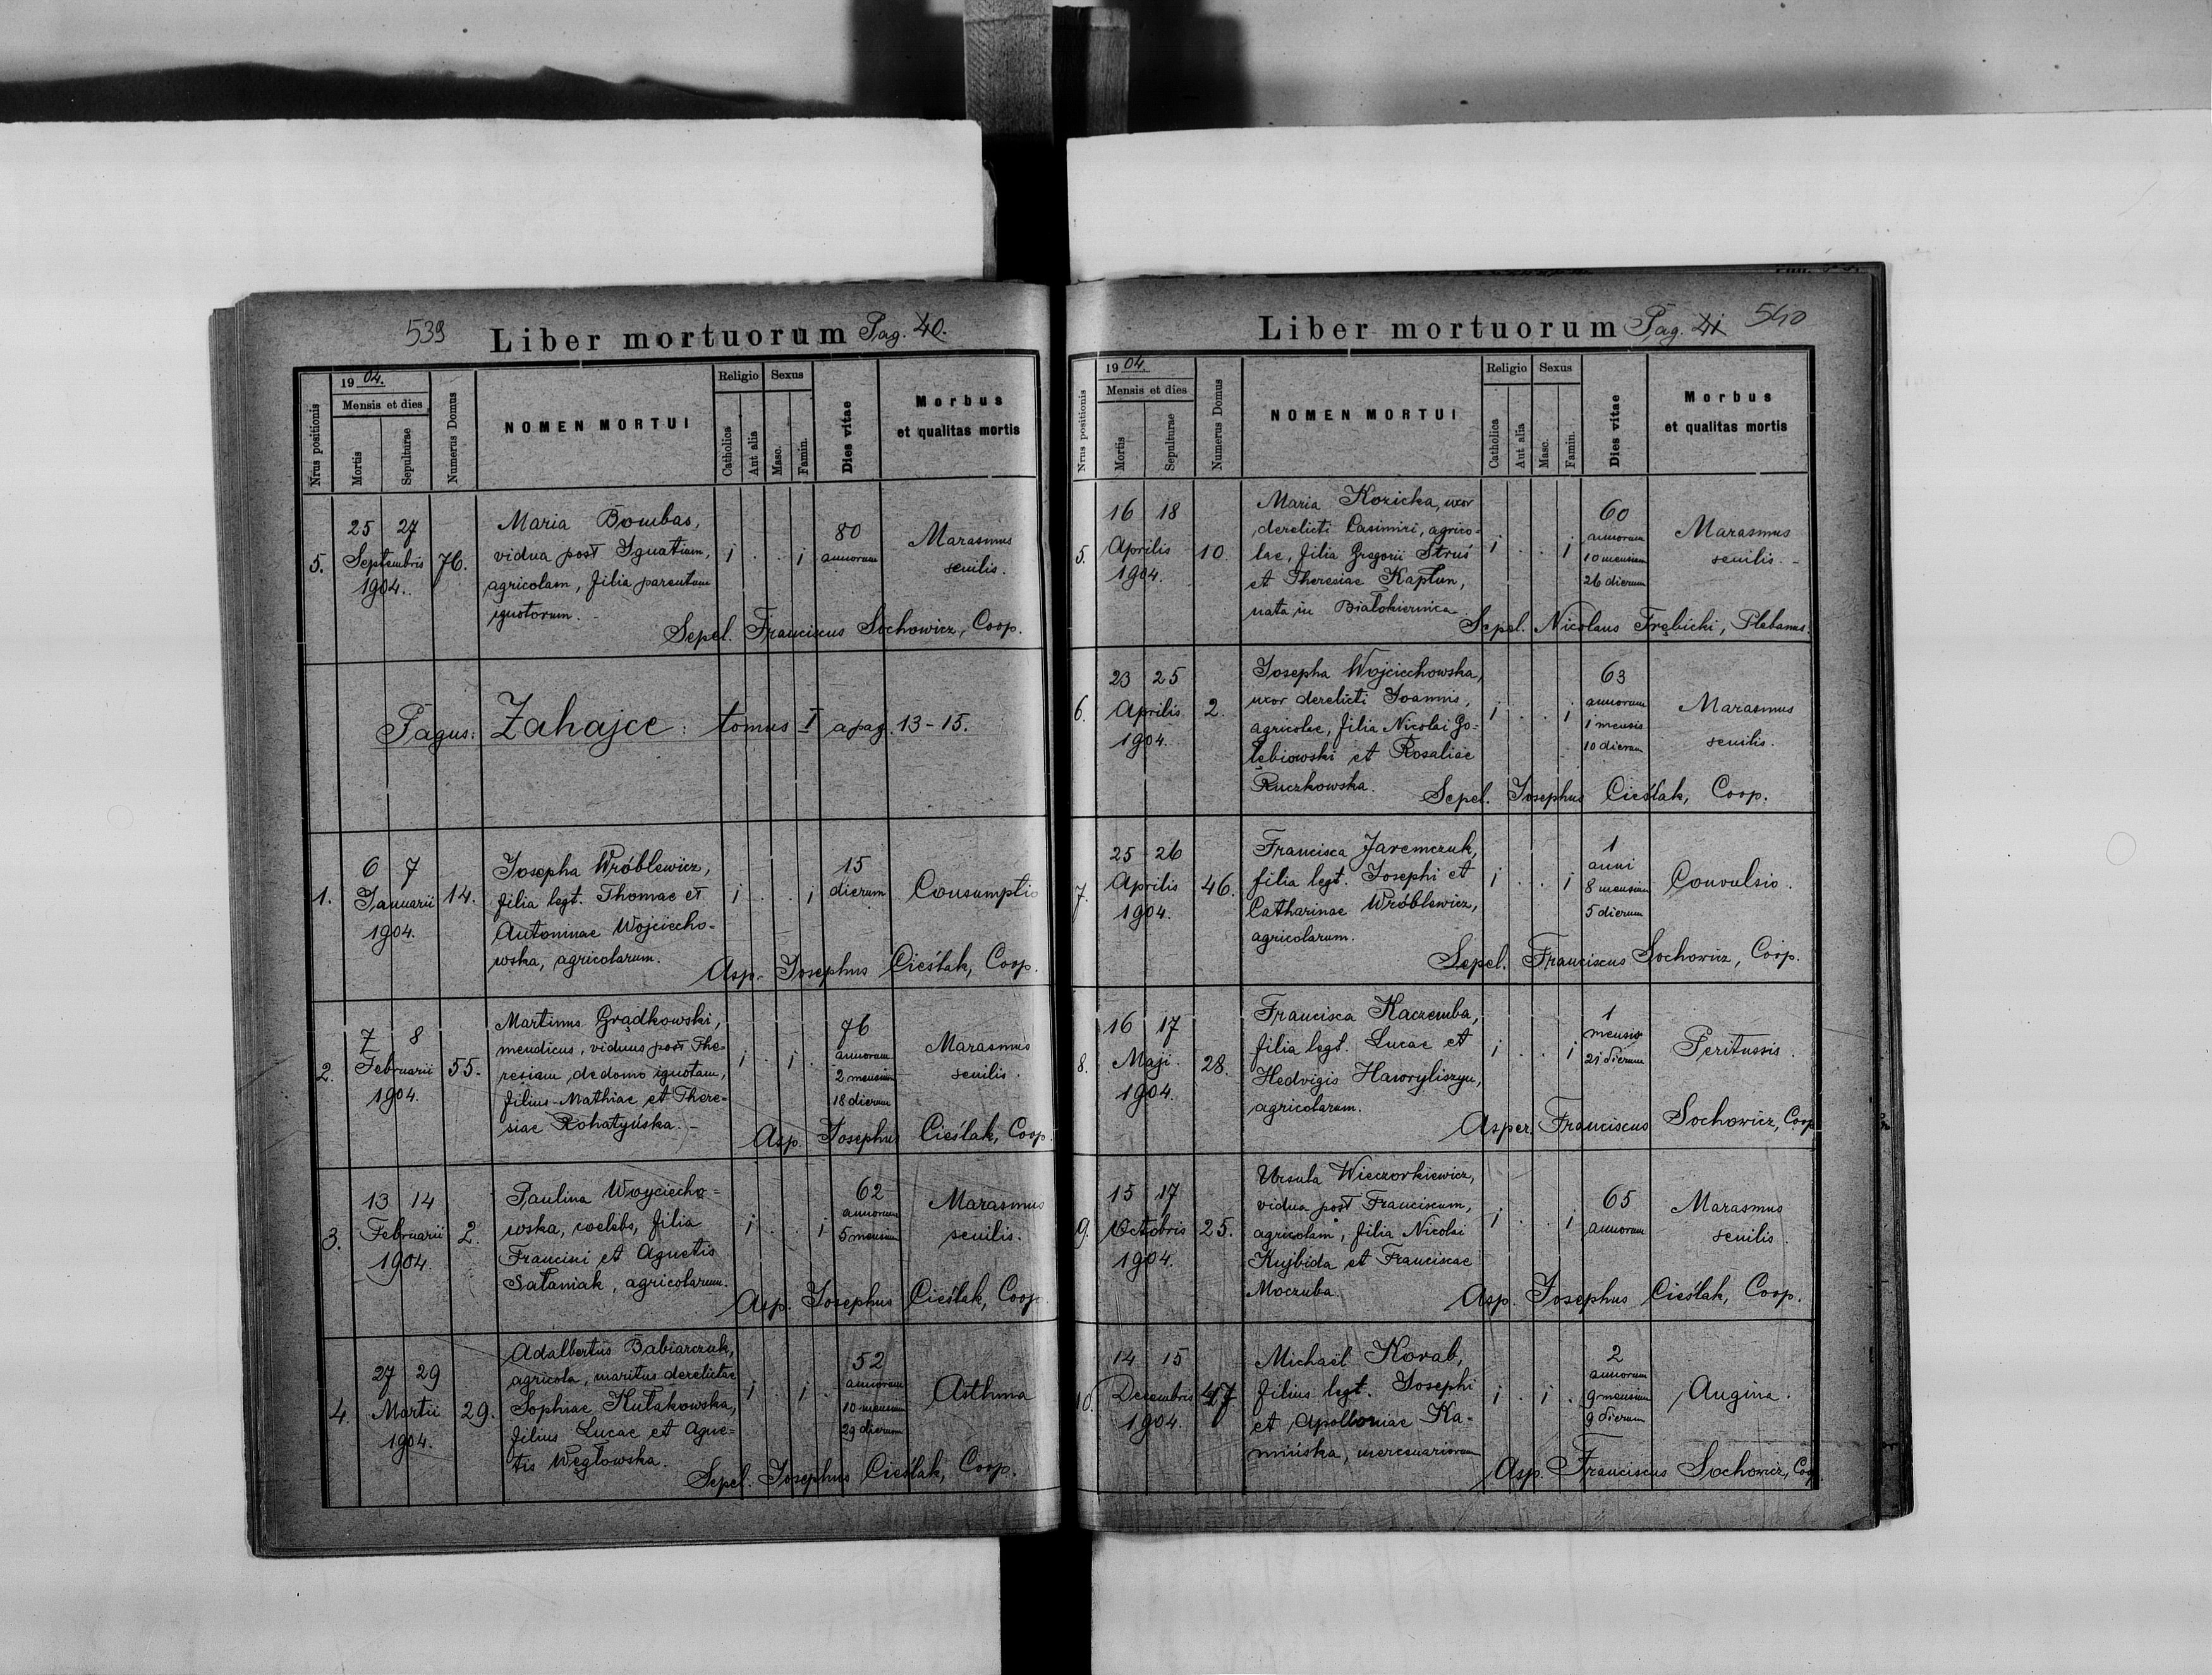 539 Liber mortuorum Pag. 40.
Nrus positionis
1904.
Mensis et dies
Mortis
Sepulturae
Numerus Domus
NOMEN MORTUI
Religio
Catholica
Aut alia
Sexus
Masc.
Famin.
Dies vitae
Morbus
et qualitas mortis
5.
25 27
Septembris
1904.
76.
Maria Bombas,
vidua post Ignatium,
agricolam, filia parentum
ignotorum.
i . . i
80
annorum
Marasmus
senilis.
Sepel. Franciscus Sochowicz, Coop.
Pagus: Zahajce: tomus I a pag. 13-15.
1.
6 7
Januarii
1904.
14.
Josepha Wróblewicz,
filia legt. Thomae et
Antoninae Wojciecho-
wska, agricolarum.
i . . i
15
dierum
Consumptio
Asp. Josephus Cieślak, Coop.
2.
7 8
Februarii
1904.
55.
Martinus Grądkowski,
mendicus, viduus post The-
resiam de domo ignotam,
filius Mathiae et There-
siae Rohatyńska.
i . i .
76
annorum
2 mensium
18 dierum
Marasmus
senilis.
Asp. Josephus Cieślak, Coop.
3.
13 14
Februarii
1904.
2.
Paulina Woyciecho-
wska, coelebs, filia
Francini et Agnetis
Sałaniak, agricolarum.
i . . i
62
annorum
5 mensium
Marasmus
senilis.
Asp. Josephus Cieślak, Coop.
4.
27 29
Martii
1904.
29.
Adalbertus Babiarczuk,
agricola, maritus derelictae
Sophiae Kułakowska,
filius Lucae et Agne-
tis Węgłowska.
i . i .
52
annorum
10 mensium
29 dierum
Asthma
Sepel. Josephus Cieślak, Coop.
Liber mortuorum Pag. 41 540
Nrus positionis
1904.
Mensis et dies
Mortis
Sepulturae
Numerus Domus
NOMEN MORTUI
Religio
Catholica
Aut alia
Sexus
Masc.
Famin.
Dies vitae
Morbus
et qualitas mortis
5.
16 18
Aprilis
1904.
10.
Maria Kozicka, uxor
derelicti Casimiri, agrico-
lae, filia Gregorii Struś
et Theresiae Kapłun,
nata in Białokiernica
i . . i
60
annorum
10 mensium
26 dierum
Marasmus
senilis.
Sepel. Nicolaus Frębicki, Plebanus.
6.
23 25
Aprilis
1904.
2.
Josepha Wojciechowska,
uxor derelicti Joannis,
agricolae, filia Nicolai Go-
łębiowski et Rosaliae
Ruczkowska.
i . . i
63
annorum
1 mensis
10 dierum
Marasmus
senilis.
Sepel. Josephus Cieślak, Coop.
7.
25 26
Aprilis
1904.
46.
Francisca Jaremczuk,
filia legt. Josephi et
Catharinae Wróblewicz,
agricolarum.
i . . i
1
anni
8 mensium
5 dierum
Convulsio.
Sepel. Franciscus Sochowicz, Coop.
8.
16 17
Maji
1904.
28.
Francisca Kaczemba,
filia legt. Lucae et
Hedvigis Hawryliszyn,
agricolarum.
i . . i
1
mensis
21 dierum
Peritussis.
Asper. Franciscus Sochowicz, Coop
9.
15 17
Octobris
1904.
25.
Ursula Wieczorkiewicz,
vidua post Franciscum,
agricolam, filia Nicolai
Kujbida et Franciscae
Moczuba.
i . . i
65
annorum
Marasmus
senilis.
Asp. Josephus Cieślak, Coop.
10.
14 15
Decembris
1904.
47
Michaël Korab,
filius legt. Josephi
et Apolloniae Ka-
mińska, mercenariorum
i . i .
2
annorum
9 mensium
9 dierum
Angina.
Asp. Franciscus Sochowicz, Coop.